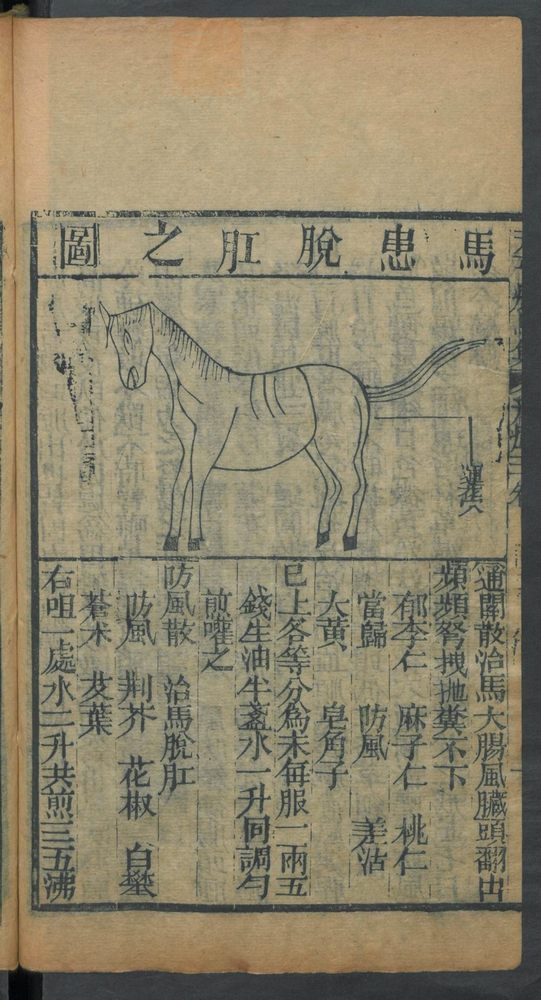 馬患脫肛之圖
通關散治馬大腸風臟頭翻出
頻頻努拽拋糞不下
郁李仁 麻子仁 桃仁
當歸 防風 羗活
大黃 皂角子
已上各等分為末每服一兩五
錢生油半盞水一升同調勻
煎嚾之
防風散 治馬脫肛
防風 荆芥 花椒 白礬
蒼术 艾葉
右咀一處水二升共煎三五沸